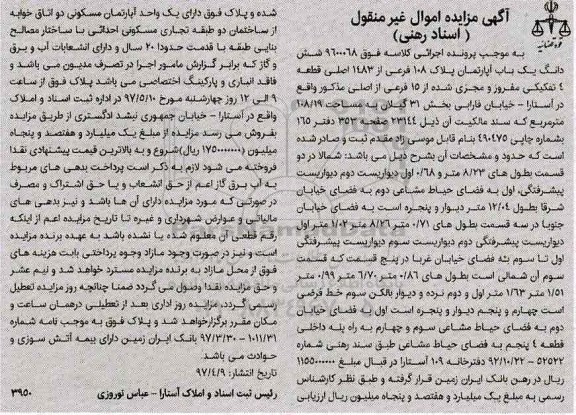 آگهی مزایده اموال غیر منقول
( اسناد رهنی)
قوه قضائیه
به موجب پرونده اجرائی کلاسه فوق ۹۶۰۰۰۶۸ شش
دانگ یک باب آپارتمان پلاک ۱۰۸ فرعی از ۱۴۸۳ اصلی قطعه
۴ تفکیکی مفروز و مجزی شده از ۱۵ فرعی از اصلی مذکور واقع
در آستارا - خیابان فارابی بخش ۳۱ گیلان به مساحت ۱۰۸/۱۹
مترمربع که سند مالکیت آن ذیل ۲۳۱۴۴ صفحه ۳۵۳ دفتر ۱۶۵
بشماره چاپی ۴۹۰۴۷۵ بنام قابل موسی زاد مقدم ثبت و صادر شده
است که حدود و مشخصات آن بشرح ذیل می باشد: شمالا در دو
قسمت بطول های ۸/۲۳ متر و ۰/۶۸ اول دیواریست دوم دیواریست
پیشرفتگی، اول به فضای حیاط مشاعی دوم به فضای خیابان
شرقا بطول ۱۲/۰۴ متر دیوار و پنجره است به فضای خیابان
جنوبا در سه قسمت بطول های ۰/۷۱ متر ۸/۲۶ متر ۱/۰۲ متر اول
دیواریست پیشرفتگی دوم دیواریست سوم دیواریست پیشرفتگی
اول تا سوم بئه فضای خیابان غربا در پنج قسمت که قسمت
سوم آن شمالی است بطول های ۰/۸۶ متر ۶/۷۰ متر ۰/۹۹ متر
۱/۵۱ متر ۱/۶۳ متر اول و دوم نرده و دیوار بالکن سوم خط فرضی
است چهارم و پنجم دیوار و پنجره است اول به فضای خیابان
دوم به فضای حیاط مشاعی سوم و چهارم به راه پله داخلی
قطعه ۴ پنجم به فضای حیاط مشاعی طبق سند رهنی شماره
۵۲۵۲۲ - ۹۲/۱۰/۲۲ دفترخانه ۱۰۹ آستارا در قبال مبلغ ۱۱۵۵۰۰۰۰۰۰
ریال در رهن بانک ایران زمین قرار گرفته و طبق نظر کارشناس
رسمی به مبلغ یک میلیارد و هفتصد و پنجاه میلیون ریال ارزیابی
شده و پلاک فوق دارای یک واحد آپارتمان مسکونی دو اتاق خوابه
از ساختمان دو طبقه تجاری مسکونی احداثی با ساختار مصالح
بنایی طبقه با قدمت حدودا ۲۰ سال و دارای انشعابات آب و برق
و گاز که برابر گزارش مامور اجرا در تصرف مدیون می باشد و
فاقد انباری و پارکینگ اختصاصی می باشد پلاک فوق از ساعت
۹ الی ۱۲ روز چهارشنبه مورخ ۹۷/۵/۱۰ در اداره ثبت اسناد و املاک
واقع در آستارا - خیابان جمهوری نبشد لادگستری از طریق مزایده
بفروش می رسد مزایده از مبلغ یک میلیارد و هفتصد و پنجاه
میلیون (۱۷۵۰۰۰۰۰۰۰ ریال)شروع و به بالاترین قیمت پیشنهادی نقدا
فروخته می شود لازم به ذکر است پرداخت بدهی های مربوط
به آب برق گاز اعم از حق انشعاب و یا حق اشتراک و مصرف
در صورتی که مورد مزایده دارای آن ها باشد و نیز بدهی های
مالیاتی و عوارض شهرداری و غیره تا تاریخ مزایده اعم از اینکه
رقم قطعی آن معلوم شده یا نشده باشد به عهده برنده مزایده
است و نیز در صورت وجود مازاد وجوه پرداختی بابت هزینه های
فوق از محل مازاد به برنده مزایده مسترد خواهد شد و نیم عشر
و حق مزایده نقدا وصول می گردد ضمنا چنانچه روز مزایده تعطیل
رسمی گردد، مزایده روز اداری بعد از تعطیلی درهمان ساعت و
مکان مقرر برگزارخواهد شد و پلاک فوق به موجب نامه شماره
۱۰۱۱/۳۱ - ۹۷/۳/۳۰ بانک ایران زمین دارای بیمه آتش سوزی و
حوادث می باشد
تاریخ انتشار: ۹۷/۴/۹
رئیس ثبت اسناد و املاک آستارا - عباس نوروزی ۳۹۵۰